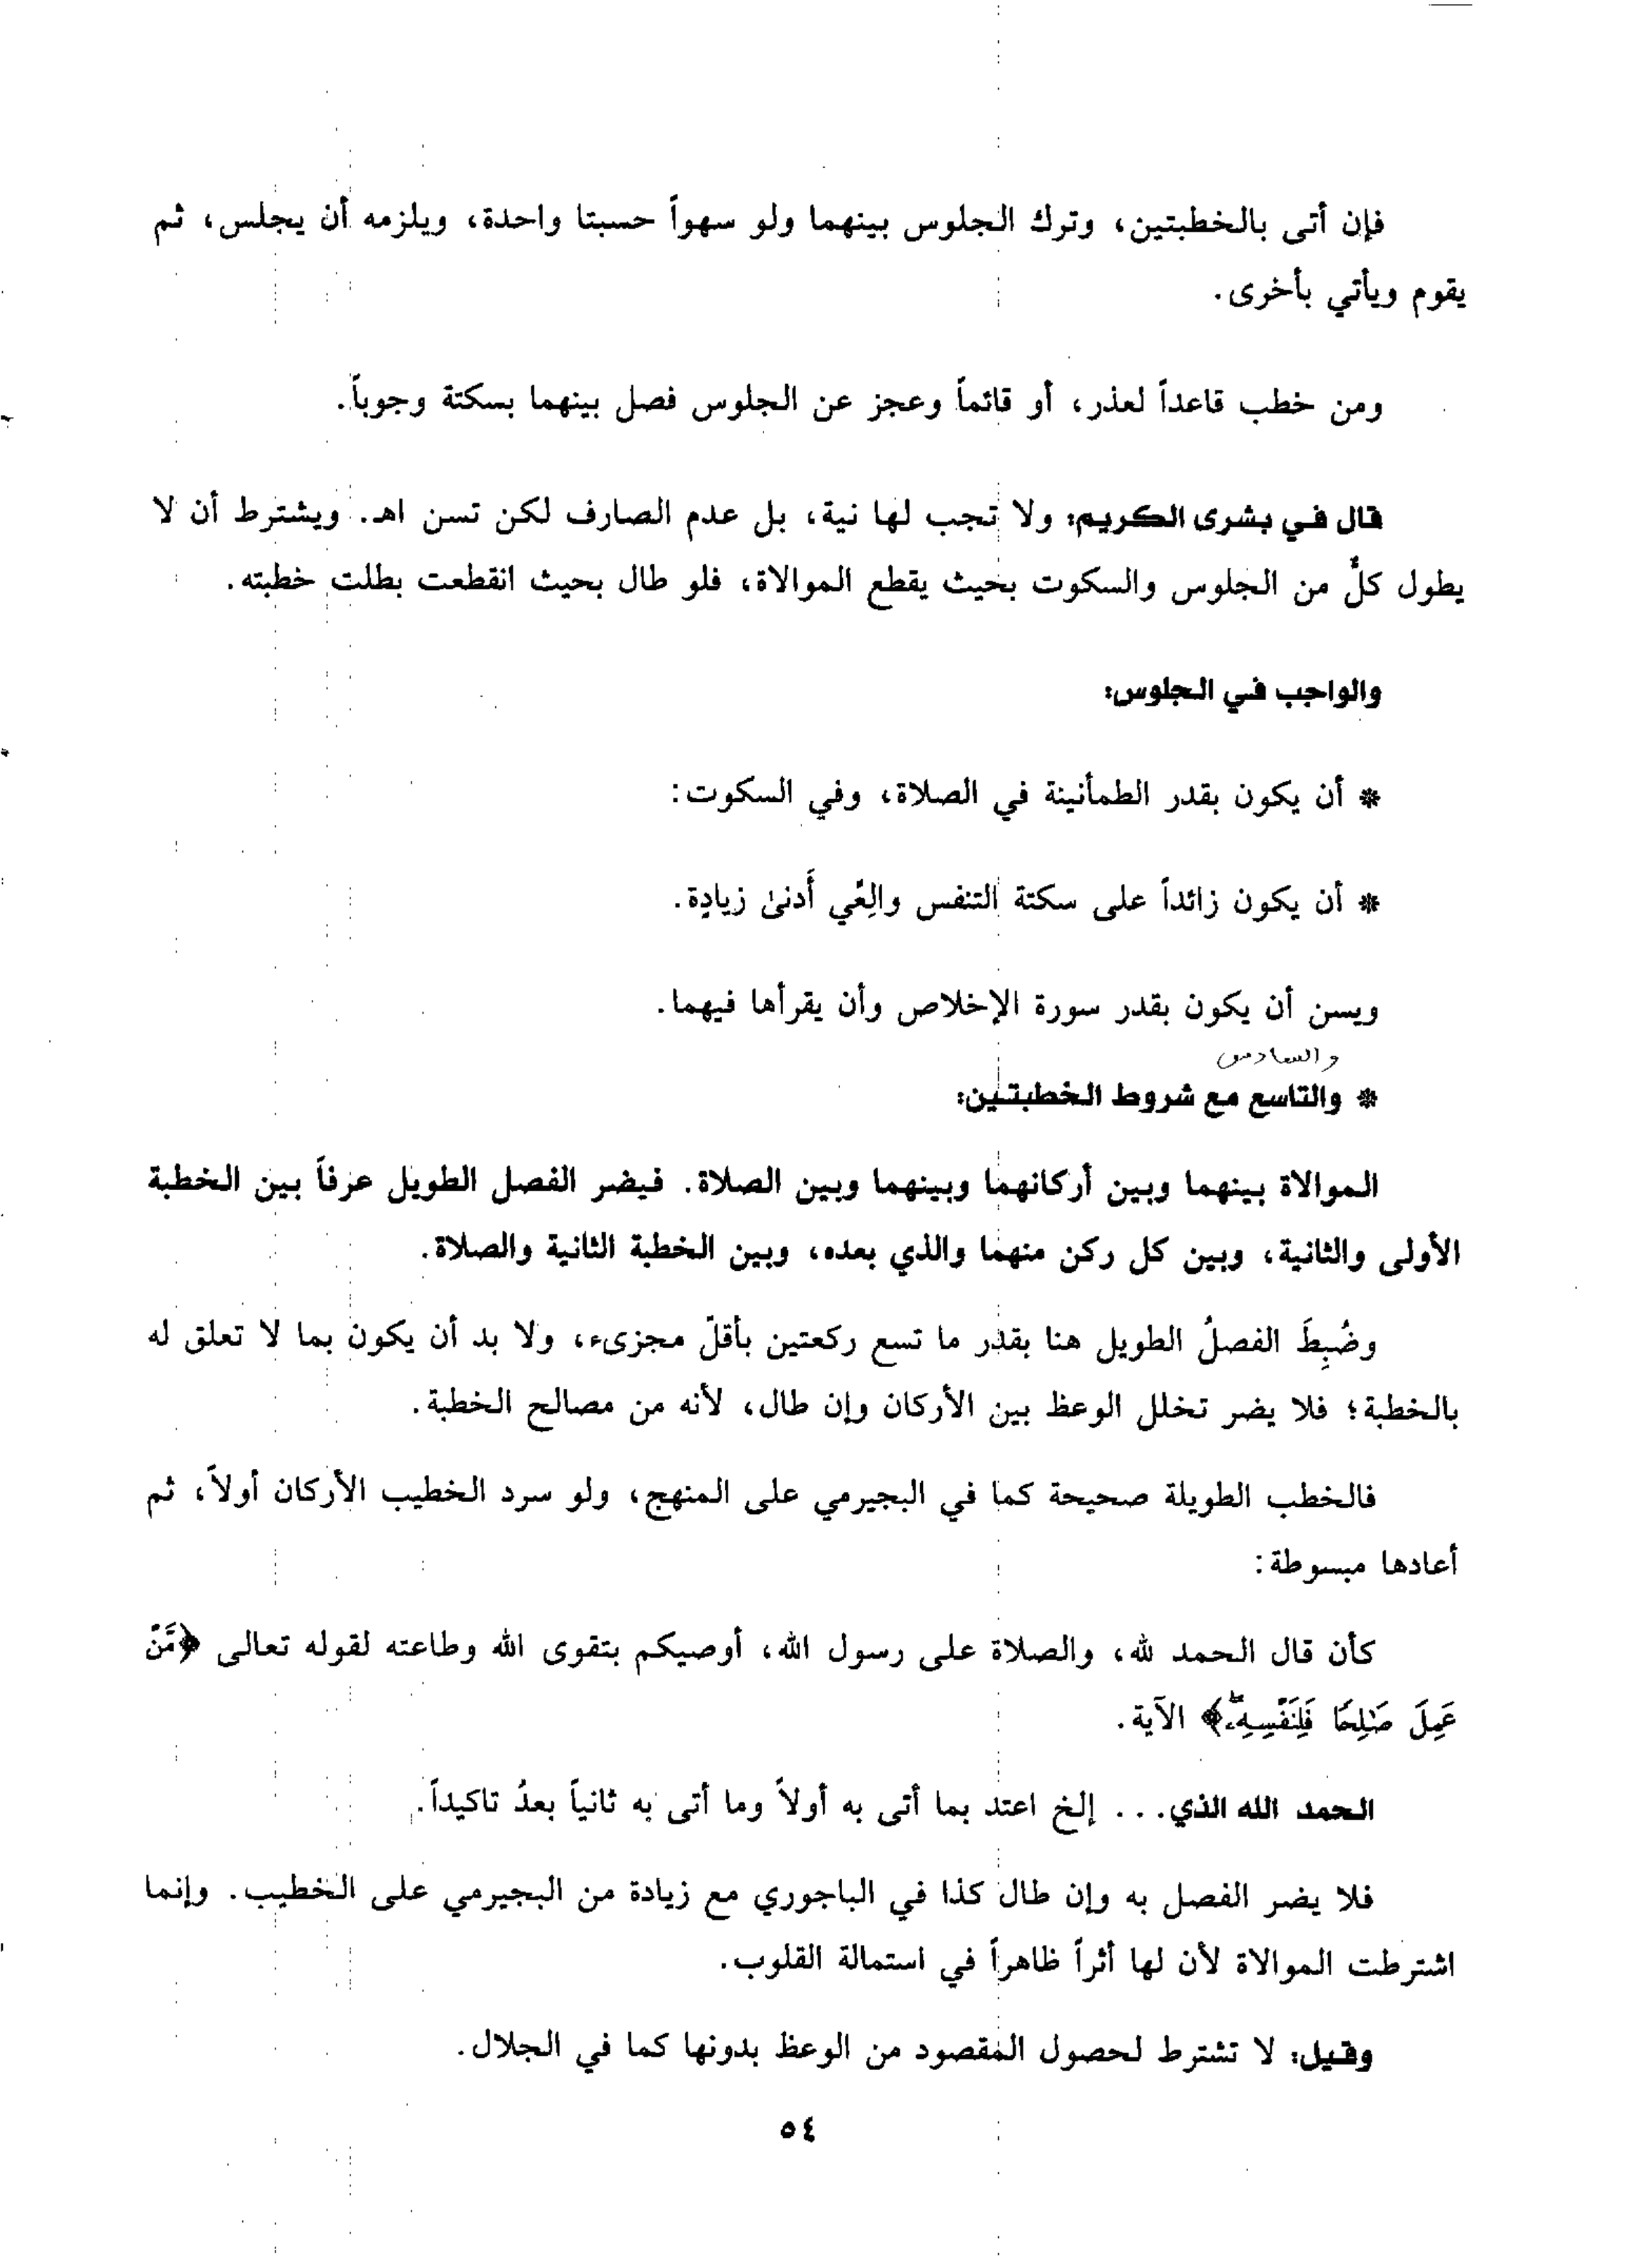 فإن أتى بالخطبتين، وترك الجلوس بينهما ولو سهواً حسبتا واحدة، ويلزمه أن يجلس، ثم
يقوم ويأتي بأخرى.
ومن خطب قاعداً لعذر، أو قائماً وعجز عن الجلوس فصل بينهما بسكتة وجوباً.
قال في بشرى الكريم: ولا تجب لها نية، بل عدم الصارف لكن تسن اهـ. ويشترط أن لا
يطول كلٌّ من الجلوس والسكوت بحيث يقطع الموالاة، فلو طال بحيث انقطعت بطلت خطبته.
والواجب في الجلوس:
* أن يكون بقدر الطمأنينة في الصلاة، وفي السكوت:
* أن يكون زائداً على سكتة التنفس والعِّي أَدنىٰ زيادةٍ.
ويسن أن يكون بقدر سورة الإخلاص وأن يقرأها فيهما.
والسادس
* والتاسع مع شروط الخطبتين:
الموالاة بينهما وبين أركانهما وبينهما وبين الصلاة. فيضر الفصل الطويل عرفاً بين الخطبة
الأولى والثانية، وبين كل ركن منهما والذي بعده، وبين الخطبة الثانية والصلاة.
وضُبِطَ الفصلُ الطويل هنا بقدر ما تسع ركعتين بأقلّ مجزىء، ولا بد أن يكون بما لا تعلق له
بالخطبة؛ فلا يضر تخلل الوعظ بين الأركان وإن طال، لأنه من مصالح الخطبة.
فالخطب الطويلة صحيحة كما في البجيرمي على المنهج، ولو سرد الخطيب الأركان أولاً، ثم
أعادها مبسوطة:
كأن قال الحمد لله، والصلاة على رسول الله، أوصيكم بتقوى الله وطاعته لقوله تعالى ﴿مَّنْ
عَمِلَ صَٰلِحًا فَلِنَفْسِهِۦۖ﴾ الآية.
الحمد الله الذي... إلخ اعتد بما أتى به أولاً وما أتى به ثانياً بعدُ تاكيداً.
فلا يضر الفصل به وإن طال كذا في الباجوري مع زيادة من البجيرمي على الخطيب. وإنما
اشترطت الموالاة لأن لها أثراً ظاهراً في استمالة القلوب.
وقيل: لا تشترط لحصول المقصود من الوعظ بدونها كما في الجلال.
٥٤